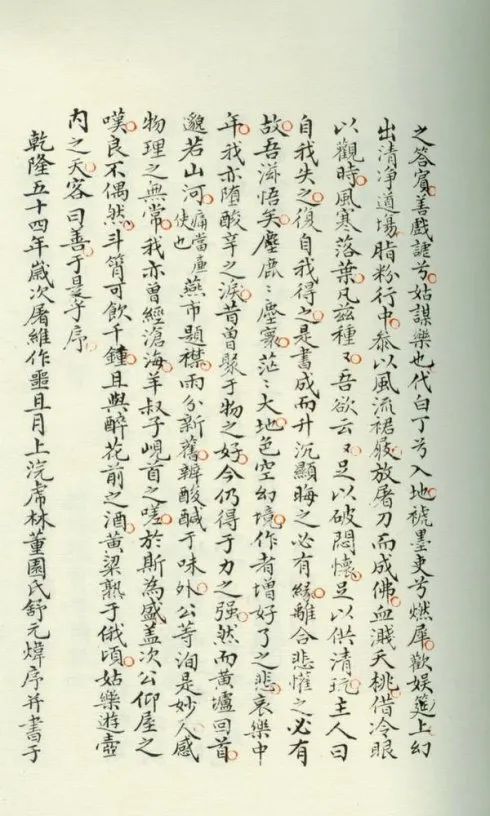 之答賓善戲謔兮姑謀樂也代白丁兮入地褫墨吏兮燃犀歡娛筵上幻
出清净道塲脂粉行中叅以風流裙屐放屠刀而成佛血濺夭桃借冷眼
以觀時風寒落葉凡茲種〻吾欲云〻足以破悶懷足以供清玩主人曰
自我失之復自我得之是書成而升沉顯晦之必有緣離合悲懽之必有
故吾滋悟矣塵鹿〻塵寰茫〻大地色空幻境作者增好了之悲哀樂中
年我亦堕酸辛之淚昔曾聚于物之好今仍得于力之强然而黄壚回首
邈若山河痛當廬使也燕市題襟雨分新舊辨酸醎于味外公等洵是妙人感
物理之無常我亦曾經滄海羊叔子峴首之嗟於斯為盛盖次公仰屋之
嘆良不偶然斗筲可飲千鍾且與醉花前之酒黄粱熟于俄頃姑樂遊壺
内之天客曰善于是乎序
乾隆五十四年嵗次屠維作噩且月上浣虎林董園氏舒元煒序并書于